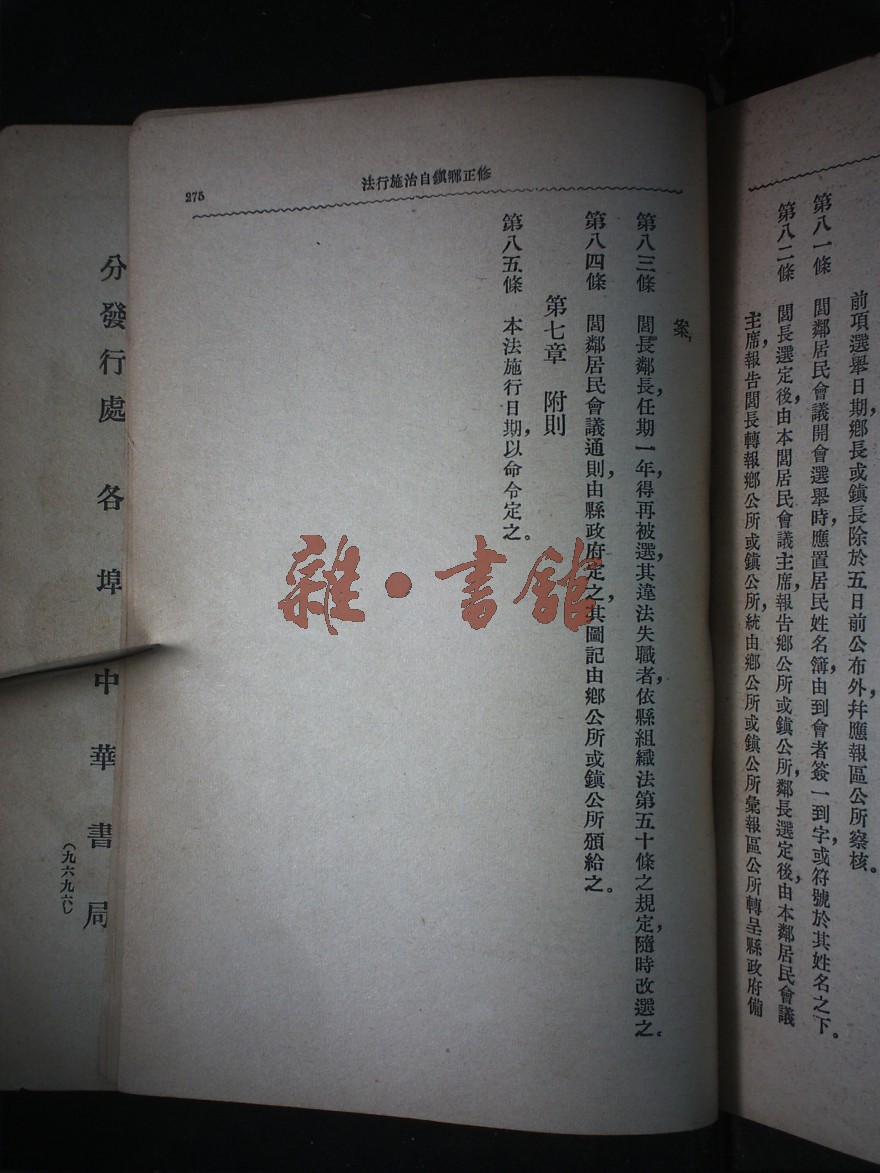 前項選舉日期，鄉長或鎮長除於五日前公布外，幷應報區公所察核。
第八一條　閭鄰居民會議開會選舉時，應置居民姓名簿，由到會者簽一到字，或符號於其姓名之下。
第八二條　閭長選定後，由本閭居民會議主席，報告鄉公所或鎮公所，鄰長選定後，由本鄰居民會議
主席，報告閭長轉報鄉公所或鎮公所，統由鄉公所或鎮公所彙報區公所轉呈縣政府備
修正鄉鎮自治施行法
275
案，
第八三條　閭長鄰長，任期一年，得再被選，其違法失職者，依縣組織法第五十條之規定，隨時改選之。
第八四條　閭鄰居民會議通則，由縣政府定之，其圖記由鄉公所或鎮公所頒給之。
第七章　附則
第八五條　本法施行日期，以命令定之。
雜·書館
分發行處　各埠中華書局
（九六九六）